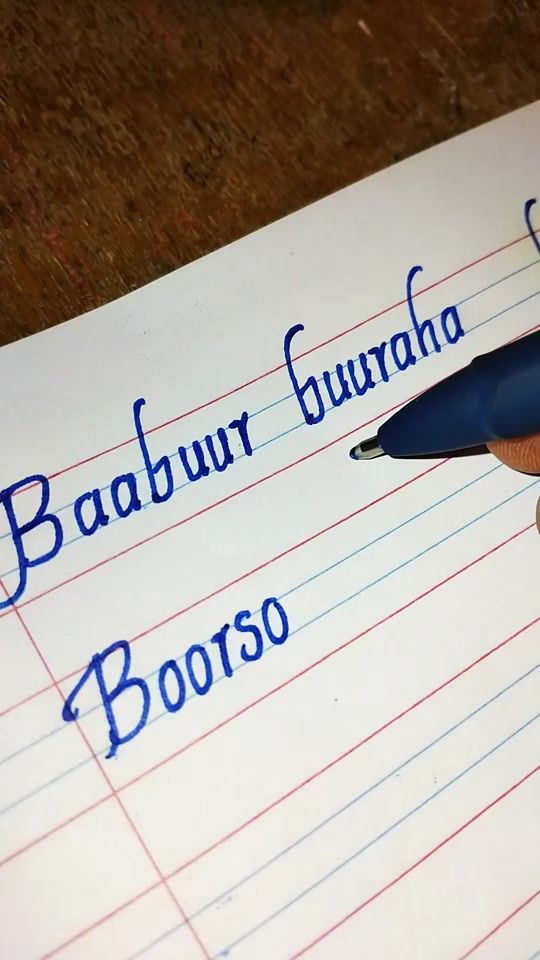 Baabuur buuraha
Boorso